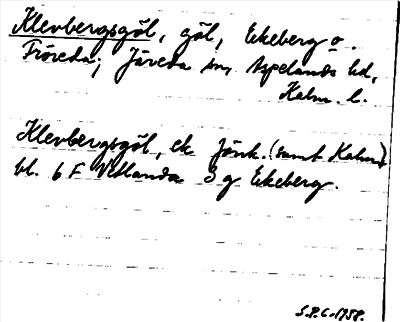 Klevbergsgöl, göl, Ekeberg o.
Fröreda; Järeda sn, Aspelands hd,
Kalm. l.
Klevbergsgöl, ek Jönk. (samt Kalm)
bl. 6 F Vetlanda 3 g Ekeberg.
S.P.C. 1958.